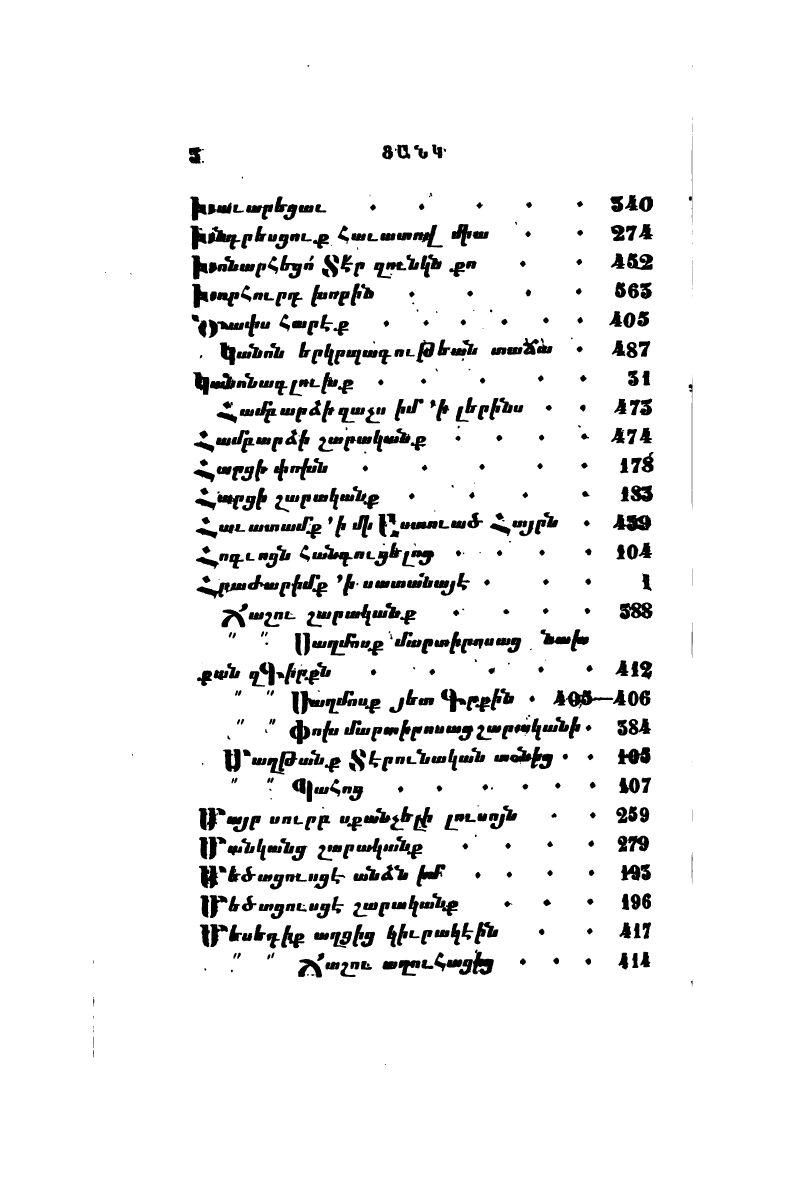 5 ՑԱՆԿ
Խաւարեցաւ • • • • • 340
Խնդրեսցուք հաւատով միա • • 274
Խոնարհեցո՛ Տէր զունկն քո • • 452
Խորհուրդ խորին • • • • 563
Ծափս հարէք • • • • • • 405
Կանոն երկրպագութեան տաճա • 487
Կանոնագլուխք • • • • • 31
Համբարձի զաչս իմ ՚ի լերինս • • 473
Համբարձի շարականք • • • • 474
Հարցի փոխն • • • • • 178
Հարցի շարականք • • • • 183
Հաւատամք ՚ի մի Աստուած Հայրն • 459
Հոգւոցն հանգուցելոց • • • • 104
Հրաժարիմք ՚ի սատանայէ • • • 1
Ճաշու շարականք • • • • 388
" " Սաղմոսք մարտիրոսաց նախ
քան զԳիրքն • • • • • • 412
" " Սաղմոսք յետ Գիրքին • 405—406
" " Փոխ մարտիրոսաց շարականի • 384
Մաղթանք Տէրունական տօնից • • 105
" " Պահոց • • • • • • 107
Մայր սուրբ սքանչելի լուսոյն • • 259
Մանկանց շարականք • • • • 279
Մեծացուսցէ անձն իմ • • • • 193
Մեծացուսցէ շարականք • • • 196
Մեսեդիք աղցից կիւրակէին • • 417
" " Ճաշու աղուհացից • • • 414